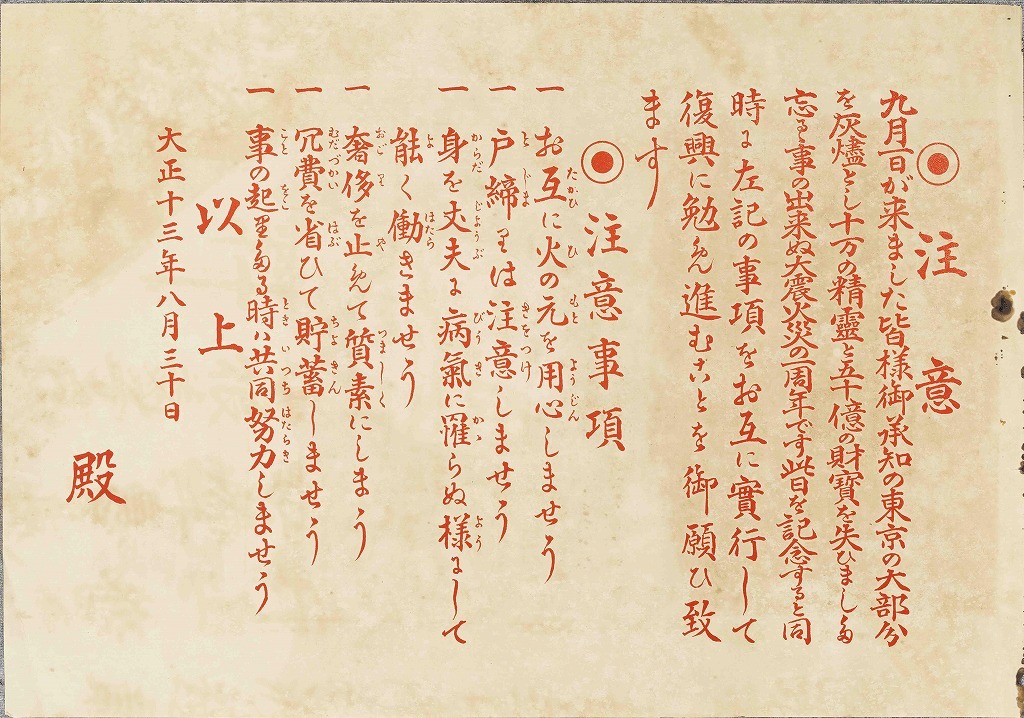 ◉注意
九月一日が来ました皆様御承知の東京の大部分
を灰燼とし十万の精靈と五十億の財寶を失ひました
忘るゝ事の出来ぬ大震火災の一周年です此日を記念すると同
時に左記の事項をお互に實行して
復興に勉めん進むことを御願ひ致
ます
◉注意事項
一 お互に火の元を用心しませう
一 戸締りは注意しませう
一 身を丈夫に病氣に罹らぬ様にして
能く働きませう
一 奢侈を止めて質素にしましう
一 冗費を省ひて貯蓄しませう
一 事の起りたる時は共同努力しませう
以上
大正十三年八月三十日
殿